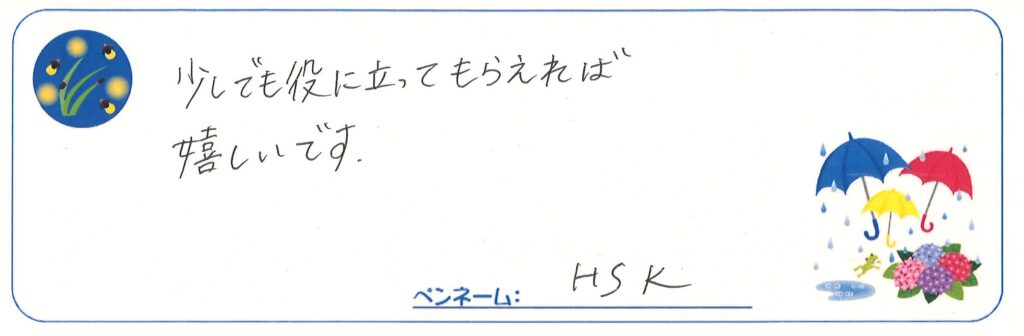 少しでも役に立ってもらえれば
嬉しいです.
ペンネーム: HSK